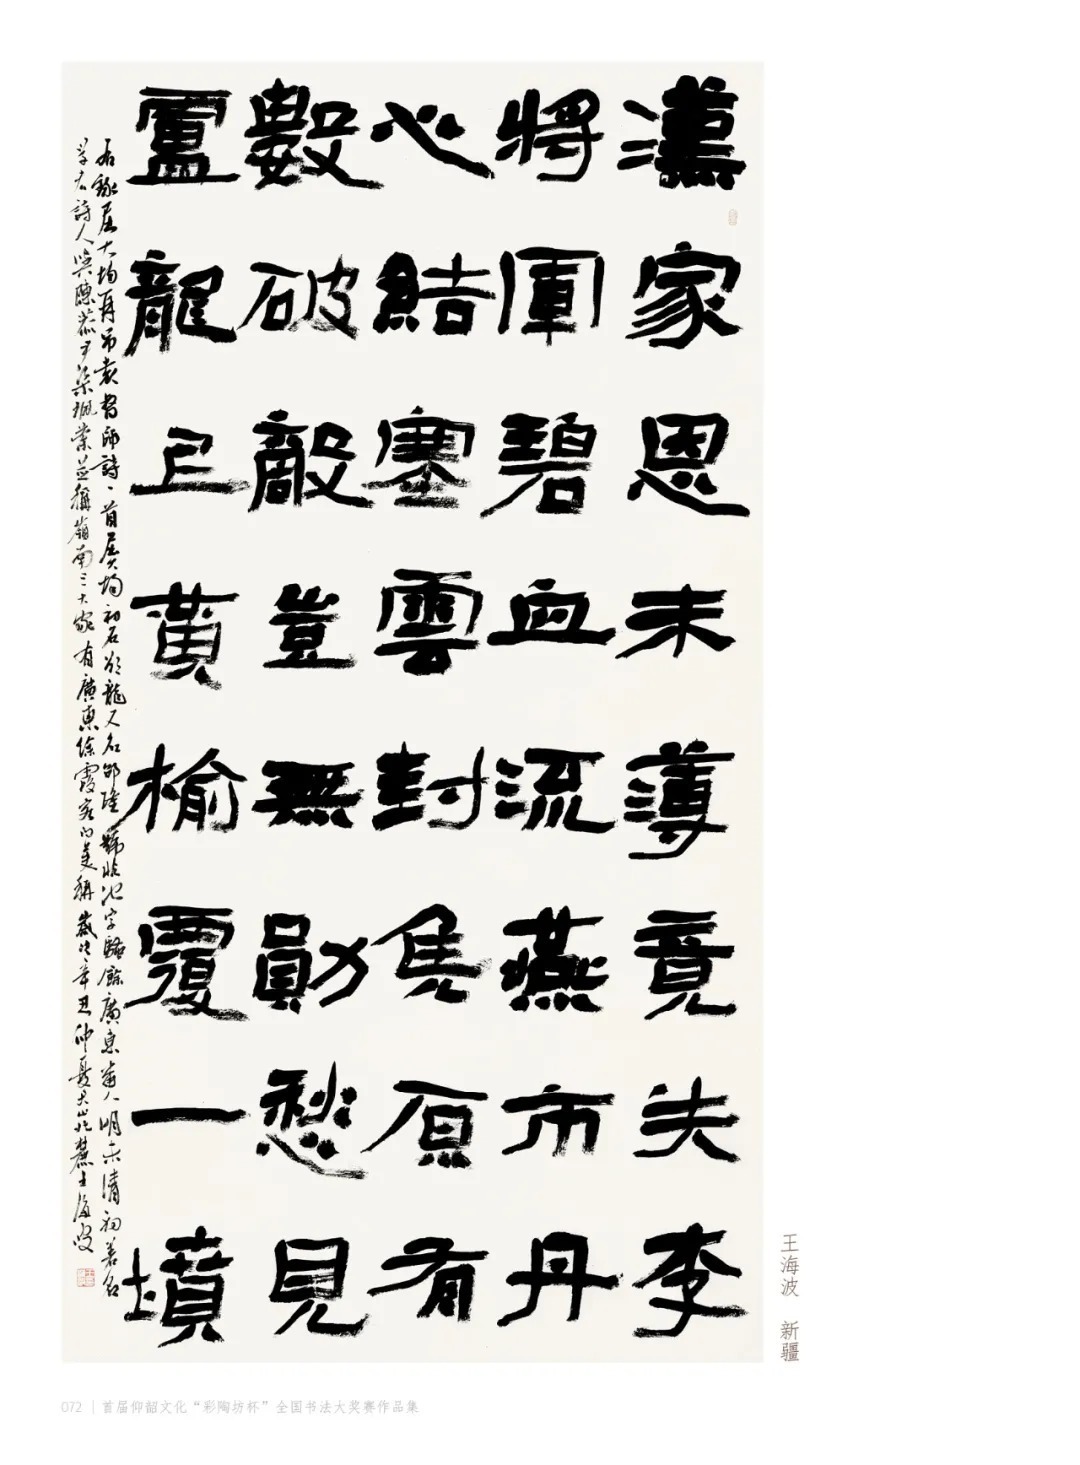 漢家恩未薄竟失李
將軍碧血流燕市丹
心結塞雲封侯原有
數破敵豈無勛愁見
盧龍已黃榆覆一墳
右録屈大均再吊袁督師詩一首屈大均初名邵龍又名邵隆號非池字騷餘廣東番人明末清初著名
學者詩人與陳恭尹梁珮蘭並稱嶺南三大家有廣東徐霞客的美稱歲次辛丑仲夏天山北麓王海波
王海波 新疆
072 | 首届仰韶文化“彩陶坊杯”全国书法大奖赛作品集